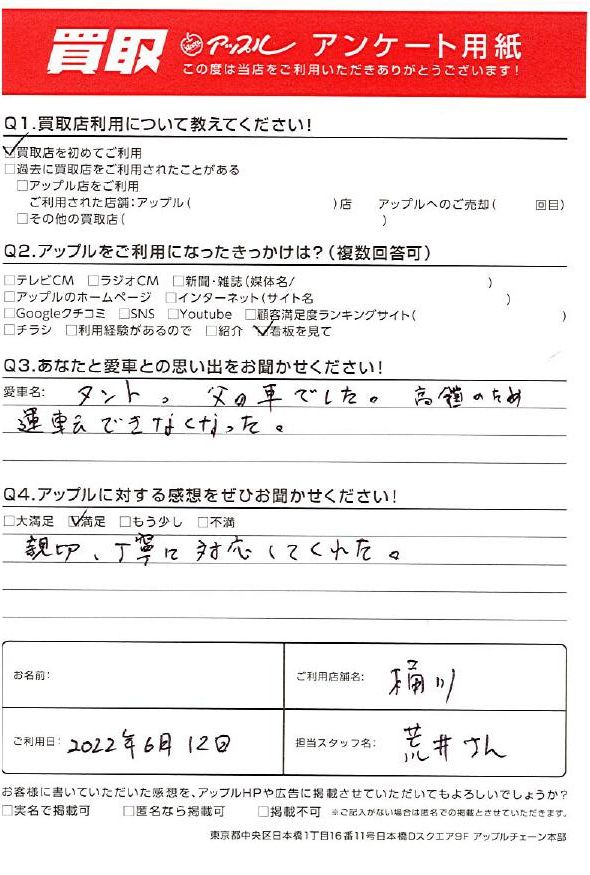 買取 アップル アンケート用紙
この度は当店をご利用いただきありがとうございます!
Q1.買取店利用について教えてください!
☑買取店を初めてご利用
□過去に買取店をご利用されたことがある
□アップル店をご利用
ご利用された店舗:アップル( )店 アップルへのご売却( 回目)
□その他の買取店( )
Q2.アップルをご利用になったきっかけは?(複数回答可)
□テレビCM □ラジオCM □新聞・雑誌(媒体名/ )
□アップルのホームページ □インターネット(サイト名 )
□Googleクチコミ □SNS □Youtube □顧客満足度ランキングサイト( )
□チラシ □利用経験があるので □紹介 ☑看板を見て
Q3.あなたと愛車との思い出をお聞かせください!
愛車名: タント。父の車でした。高齢のため
運転できなくなった。
Q4.アップルに対する感想をぜひお聞かせください!
□大満足 ☑満足 □もう少し □不満
親切、丁寧に対応してくれた。
お名前: ご利用店舗名: 桶川
ご利用日: 2022年6月12日 担当スタッフ名: 荒井さん
お客様に書いていただいた感想を、アップルHPや広告に掲載させていただいてもよろしいでしょうか?
□実名で掲載可 □匿名なら掲載可 □掲載不可 ※ご記入がない場合は匿名での掲載とさせていただきます。
東京都中央区日本橋1丁目16番11号日本橋Dスクエア9F アップルチェーン本部